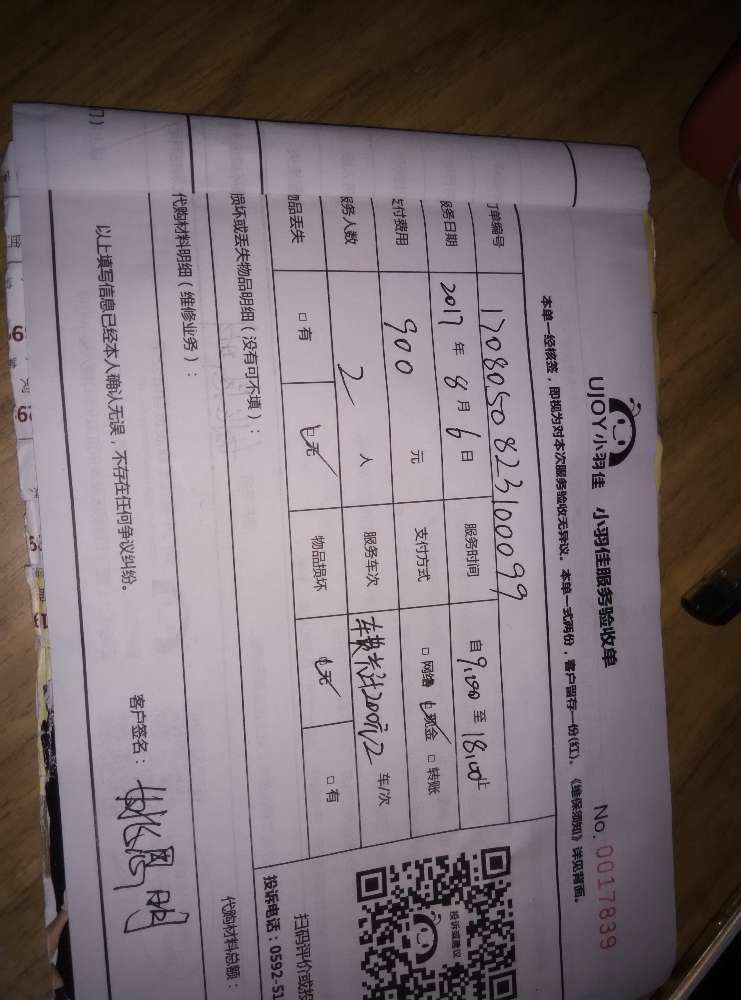 UJOY小羽佳 小羽佳服务验收单
No. 0017839
本单一经核签，即视为对本次服务验收无异议。本单一式两份，客户留存一份(红)。《维保须知》详见背面。
订单编号 1708050823100099
服务日期 2017 年 8 月 6 日 服务时间 自 9:00 至 18:00 止
支付费用 900 元 支付方式 □ 网络 □ 现金 □ 转账
服务人数 2 人 服务车次 2 车/次
物品丢失 □ 有 □ 无 物品损坏 □ 无 □ 有
损坏或丢失物品明细（没有可不填）：
代购材料明细（维修业务）：
代购材料总额：
以上填写信息已经本人确认无误，不存在任何争议纠纷。
客户签名：
投诉或建议
扫码评价或投
投诉电话：0592-51